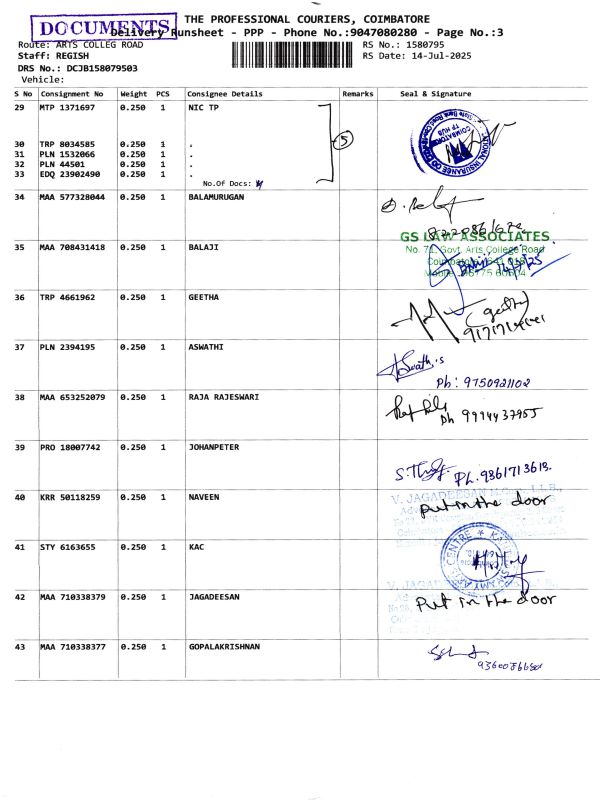 DOCUMENTS
THE PROFESSIONAL COURIERS, COIMBATORE
Delivery Runsheet - PPP - Phone No.:9047080280 - Page No.:3
Route: ARTS COLLEG ROAD
RS No.: 1580795
Staff: REGISH
RS Date: 14-Jul-2025
DRS No.: DCJB158079503
Vehicle:
S No Consignment No Weight PCS Consignee Details Remarks Seal & Signature
29 MTP 1371697 0.250 1 NIC TP
30 TRP 8034585 0.250 1 .
31 PLN 1532066 0.250 1 .
32 PLN 44501 0.250 1 .
33 EDQ 23902490 0.250 1 .
5
No.Of Docs:
COIMBATORE
TP HUB
34 MAA 577328044 0.250 1 BALAMURUGAN
GS LAW ASSOCIATES
35 MAA 708431418 0.250 1 BALAJI
No. 71, Govt. Arts College Road
36 TRP 4661962 0.250 1 GEETHA
37 PLN 2394195 0.250 1 ASWATHI
Aswathi.s
Ph: 9750921102
38 MAA 653252079 0.250 1 RAJA RAJESWARI
Ph 9994437955
39 PRO 18007742 0.250 1 JOHANPETER
Ph. 9361713613.
40 KRR 50118259 0.250 1 NAVEEN
V. JAGADEESAN
put in the door
41 STY 6163655 0.250 1 KAC
42 MAA 710338379 0.250 1 JAGADEESAN
Put in the door
43 MAA 710338377 0.250 1 GOPALAKRISHNAN